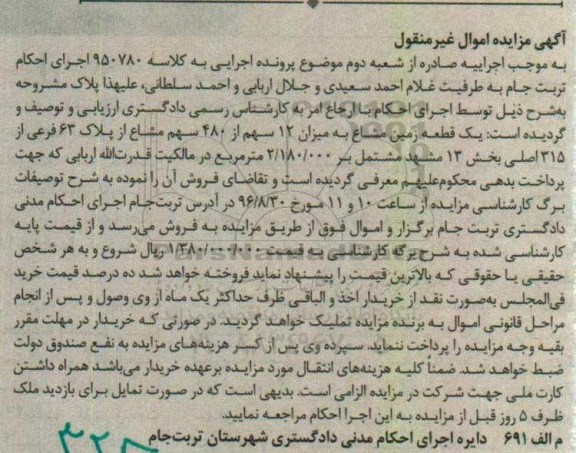 آگهی مزایده اموال غیرمنقول
به موجب اجراییه صادره از شعبه دوم موضوع پرونده اجرایی به کلاسه ۹۵۰۷۸۰ اجرای احکام
تربت جام به طرفیت غلام احمد سعیدی و جلال اربابی و احمد سلطانی، علیهذا پلاک مشروحه
به‌شرح ذیل توسط اجرای احکام با ارجاع امر به کارشناس رسمی دادگستری ارزیابی و توصیف و
گردیده است: یک قطعه زمین مشاع به میزان ۱۲ سهم از ۴۸۰ سهم مشاع از پلاک ۶۳ فرعی از
۳۱۵ اصلی بخش ۱۳ مشهد مشتمل بر ۲/۱۸۰/۰۰۰ مترمربع در مالکیت قدرت‌الله اربابی که جهت
پرداخت بدهی محکوم‌علیهم معرفی گردیده است و تقاضای فروش آن را نموده به شرح توصیفات
برگ کارشناسی مزایده از ساعت ۱۰ و ۱۱ مورخ ۹۶/۸/۳۰ در آدرس تربت‌جام اجرای احکام مدنی
دادگستری تربت جام برگزار و اموال فوق از طریق مزایده به فروش می‌رسد و از قیمت پایه
کارشناسی شده به شرح برگه کارشناسی به قیمت ۱/۳۸۰/۰۰۰/۰۰۰ ریال شروع و به هر شخص
حقیقی یا حقوقی که بالاترین قیمت را پیشنهاد نماید فروخته خواهد شد ده درصد قیمت خرید
فی‌المجلس به‌صورت نقد از خریدار اخذ و الباقی ظرف حداکثر یک ماه از وی وصول و پس از انجام
مراحل قانونی اموال به برنده مزایده تملیک خواهد گردید. در صورتی که خریدار در مهلت مقرر
بقیه وجه مزایده را پرداخت ننماید. سپرده وی پس از کسر هزینه‌های مزایده به نفع صندوق دولت
ضبط خواهد شد. ضمناً کلیه هزینه‌های انتقال مورد مزایده برعهده خریدار می‌باشد همراه داشتن
کارت ملی جهت شرکت در مزایده الزامی است. بدیهی است که در صورت تمایل برای بازدید ملک
ظرف ۵ روز قبل از مزایده به این اجرا احکام مراجعه نمایید.
م الف ۶۹۱ دایره اجرای احکام مدنی دادگستری شهرستان تربت‌جام